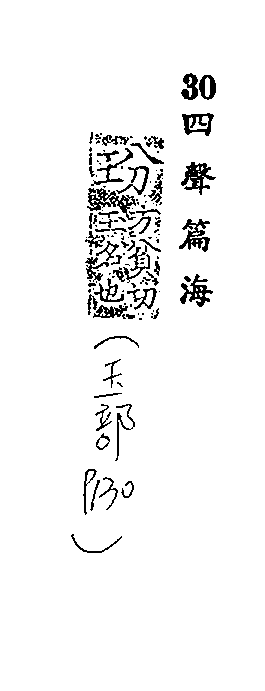 30四聲篇海
玢
方貧切
玉名也
(玉部P130)